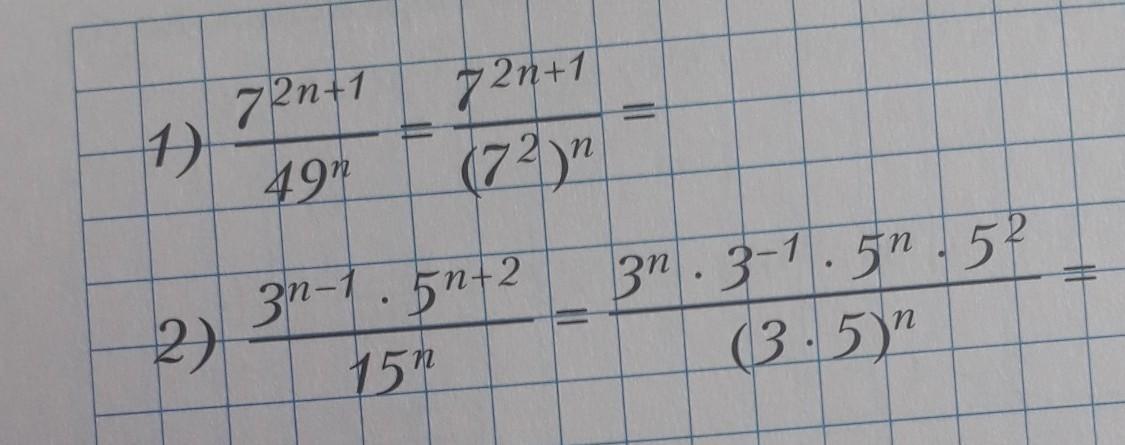 1) \frac{7^{2n+1}}{49^n} = \frac{7^{2n+1}}{(7^2)^n} =
2) \frac{3^{n-1} \cdot 5^{n+2}}{15^n} = \frac{3^n \cdot 3^{-1} \cdot 5^n \cdot 5^2}{(3 \cdot 5)^n} =